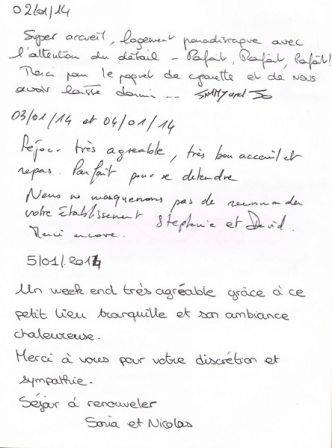 02/01/14
Super accueil, logement paradisiaque avec
l'attention du détail - Parfait, Parfait, Parfait!
Merci pour le paquet de cigarette et de nous
avoir laissé dormir ...
03/01/14 et 04/01/14
Séjour très agréable, très bon accueil et
repas. Parfait pour se detendre
Nous ne manquerons pas de recommander
votre établissement Stephanie et David.
Merci encore.
5/01/2014
Un week end très agréable grâce à ce
petit lieu tranquille et son ambiance
chaleureuse.
Merci à vous pour votre discrétion et
sympathie.
Séjour à renouveler
Sonia et Nicolas